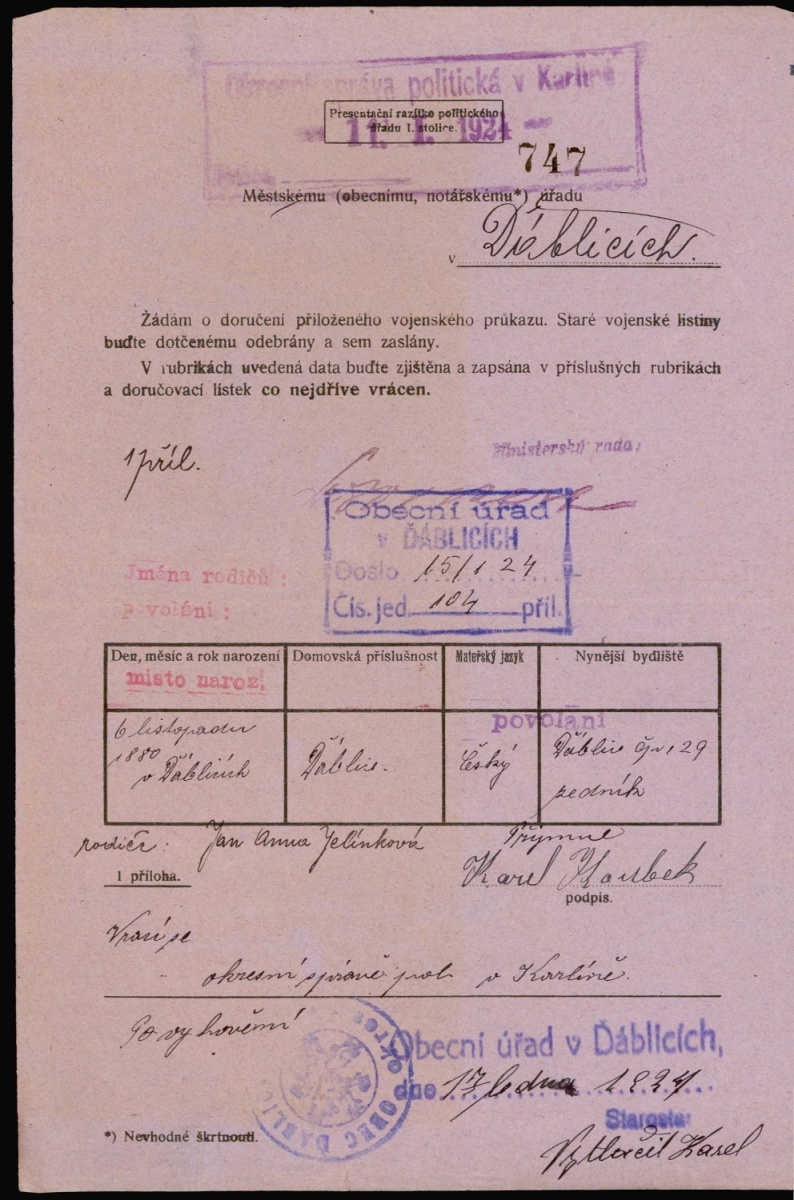 Okresní správa politická v Karlíně
Presentační razítko politického
úřadu I. stolice.
11. I. 1924
747
Městskému (obecnímu, notářskému*) úřadu
v Ďáblicích.
Žádám o doručení přiloženého vojenského průkazu. Staré vojenské listiny
buďte dotčenému odebrány a sem zaslány.
V rubrikách uvedená data buďte zjištěna a zapsána v příslušných rubrikách
a doručovací lístek co nejdříve vrácen.
1 příl.
Ministerský rada:
Obecní úřad
v ĎÁBLICÍCH
Došlo 15/1 24
Čís. jed. 104 příl.
Jména rodičů:
povolání:
Den, měsíc a rok narození
Domovská příslušnost
Mateřský jazyk
Nynější bydliště
místo naroz.
povolání
6 listopadu
1880
v Ďáblicích
Ďáblice.
český
Ďáblice čp. 129
zedník
rodiče: Jan Anna Jelínková
1 příloha.
Karel
podpis.
Vrací se
okresní správě pol. v Karlíně.
Po vyhovění
OBEC ĎÁBLIC
OKRES
Obecní úřad v Ďáblicích,
dne 17 ledna 1924
Starosta:
*) Nevhodné škrtnouti.
Vytlačil Karel